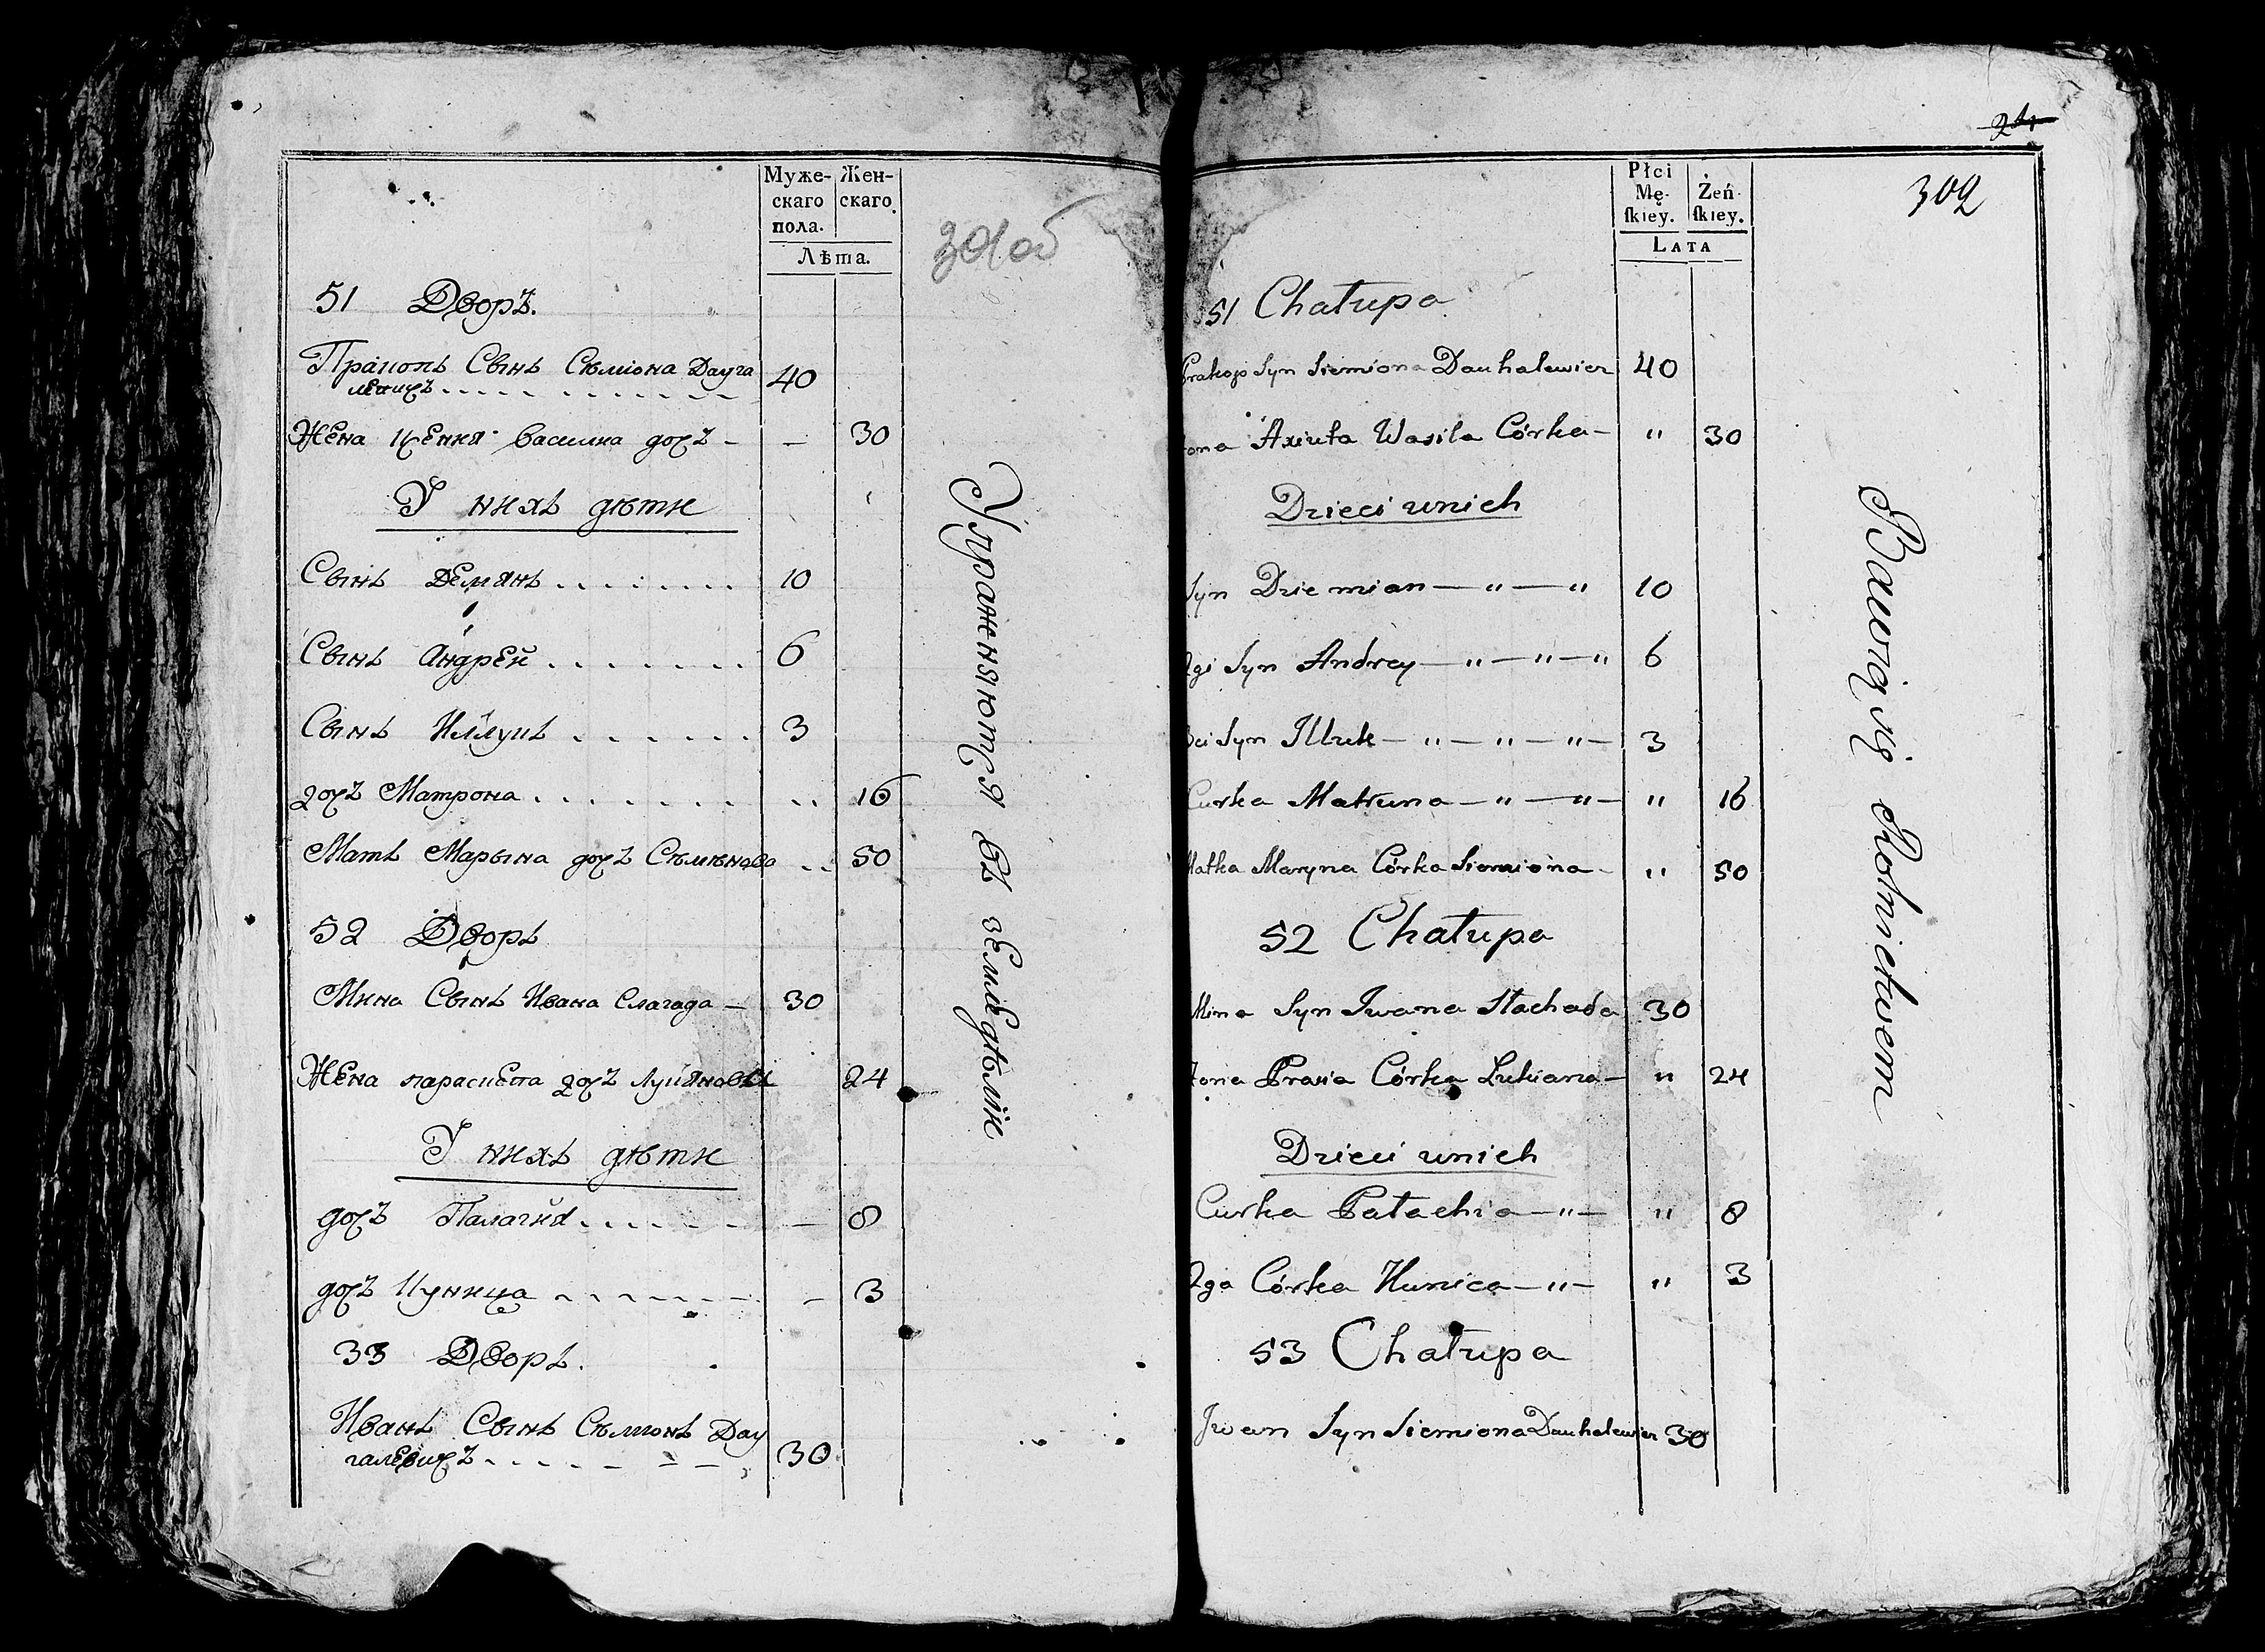 Муже-
скаго
пола.
Жен-
скаго.
Лѣта.
301об
51 Дворъ.
Пракопъ Сынъ Сѣміона Дауга
левичъ
40
Жена Ксеня Василка дочъ
30
У нихъ дѣти
Сынъ Демянъ
10
Сынъ Андрей
6
Сынъ Иллукъ
3
дочъ Матрона
16
Мать Марына дочъ
50
52 Дворъ
Мина Сынъ Ивана Слагада
30
Жена параскева дочъ
24
У нихъ дѣти
дочъ Палагия
8
дочъ Куница
3
33 Дворъ.
Иванъ Сынъ Сѣміонъ Дау
галевичъ
30
Упражняются въ земледѣлїи
24
302
Płci
Mę-
ſkiey.
Żeń-
ſkiey.
LATA
51 Chałupa
Prakop Syn Siemiona Dauhalewicz 40
Żona Axiuta Wasila Córka — " 30
Dzieci unich
Syn Dziemian — " — " 10
2gi Syn Andrey — " — " — " 6
3ci Syn Illuk — " — " — " — 3
Curka Matruna — " — " — " 16
Matka Maryna Córka Siemiona — " 50
52 Chałupa
Mina Syn Iwana Słachada 30
Żona Prasia Córka Łukiana — " 24
Dzieci unich
Curka Pałachia — " — " 8
2ga Córka Kunica — " — " 3
53 Chałupa
Iwan Syn Siemiona Dauhalewicz 30
Bawią się Rolnictwem